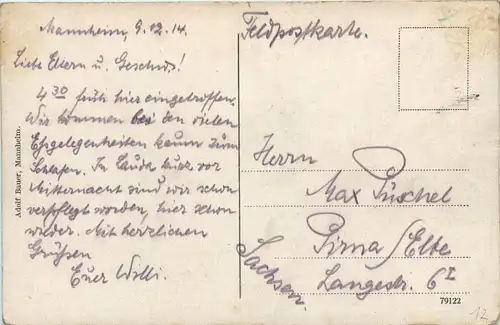 Mannheim, 9.12.14.
Liebe Eltern u. Geschws!
4 30 früh hier eingetroffen.
Wir kommen bei den vielen
Eßgelegenheiten kaum zum
Schlafen. In Lauda kurz vor
Mitternacht sind wir schon
verpflegt worden, hier schon
wieder. Mit herzlichen
Grüßen
Euer Willi.
Adolf Bauer, Mannheim.
Feldpostkarte.
Herrn
Max Püschel
Pirna/Elbe
Langestr. 6 I
Sachsen.
79122
12